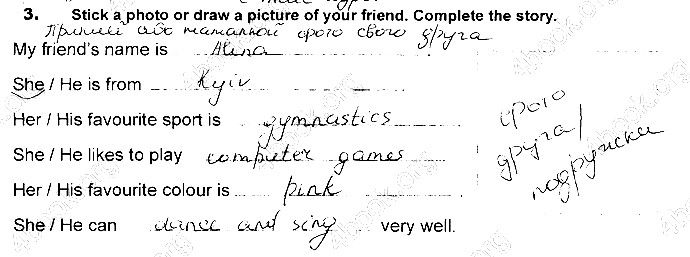 3. Stick a photo or draw a picture of your friend. Complete the story.
друга
My friend's name is Alina
She / He is from Kyiv
Her / His favourite sport is gymnastics
She / He likes to play computer games
Her / His favourite colour is pink
She / He can dance and sing very well.
фото
друга /
подружки
4book.org